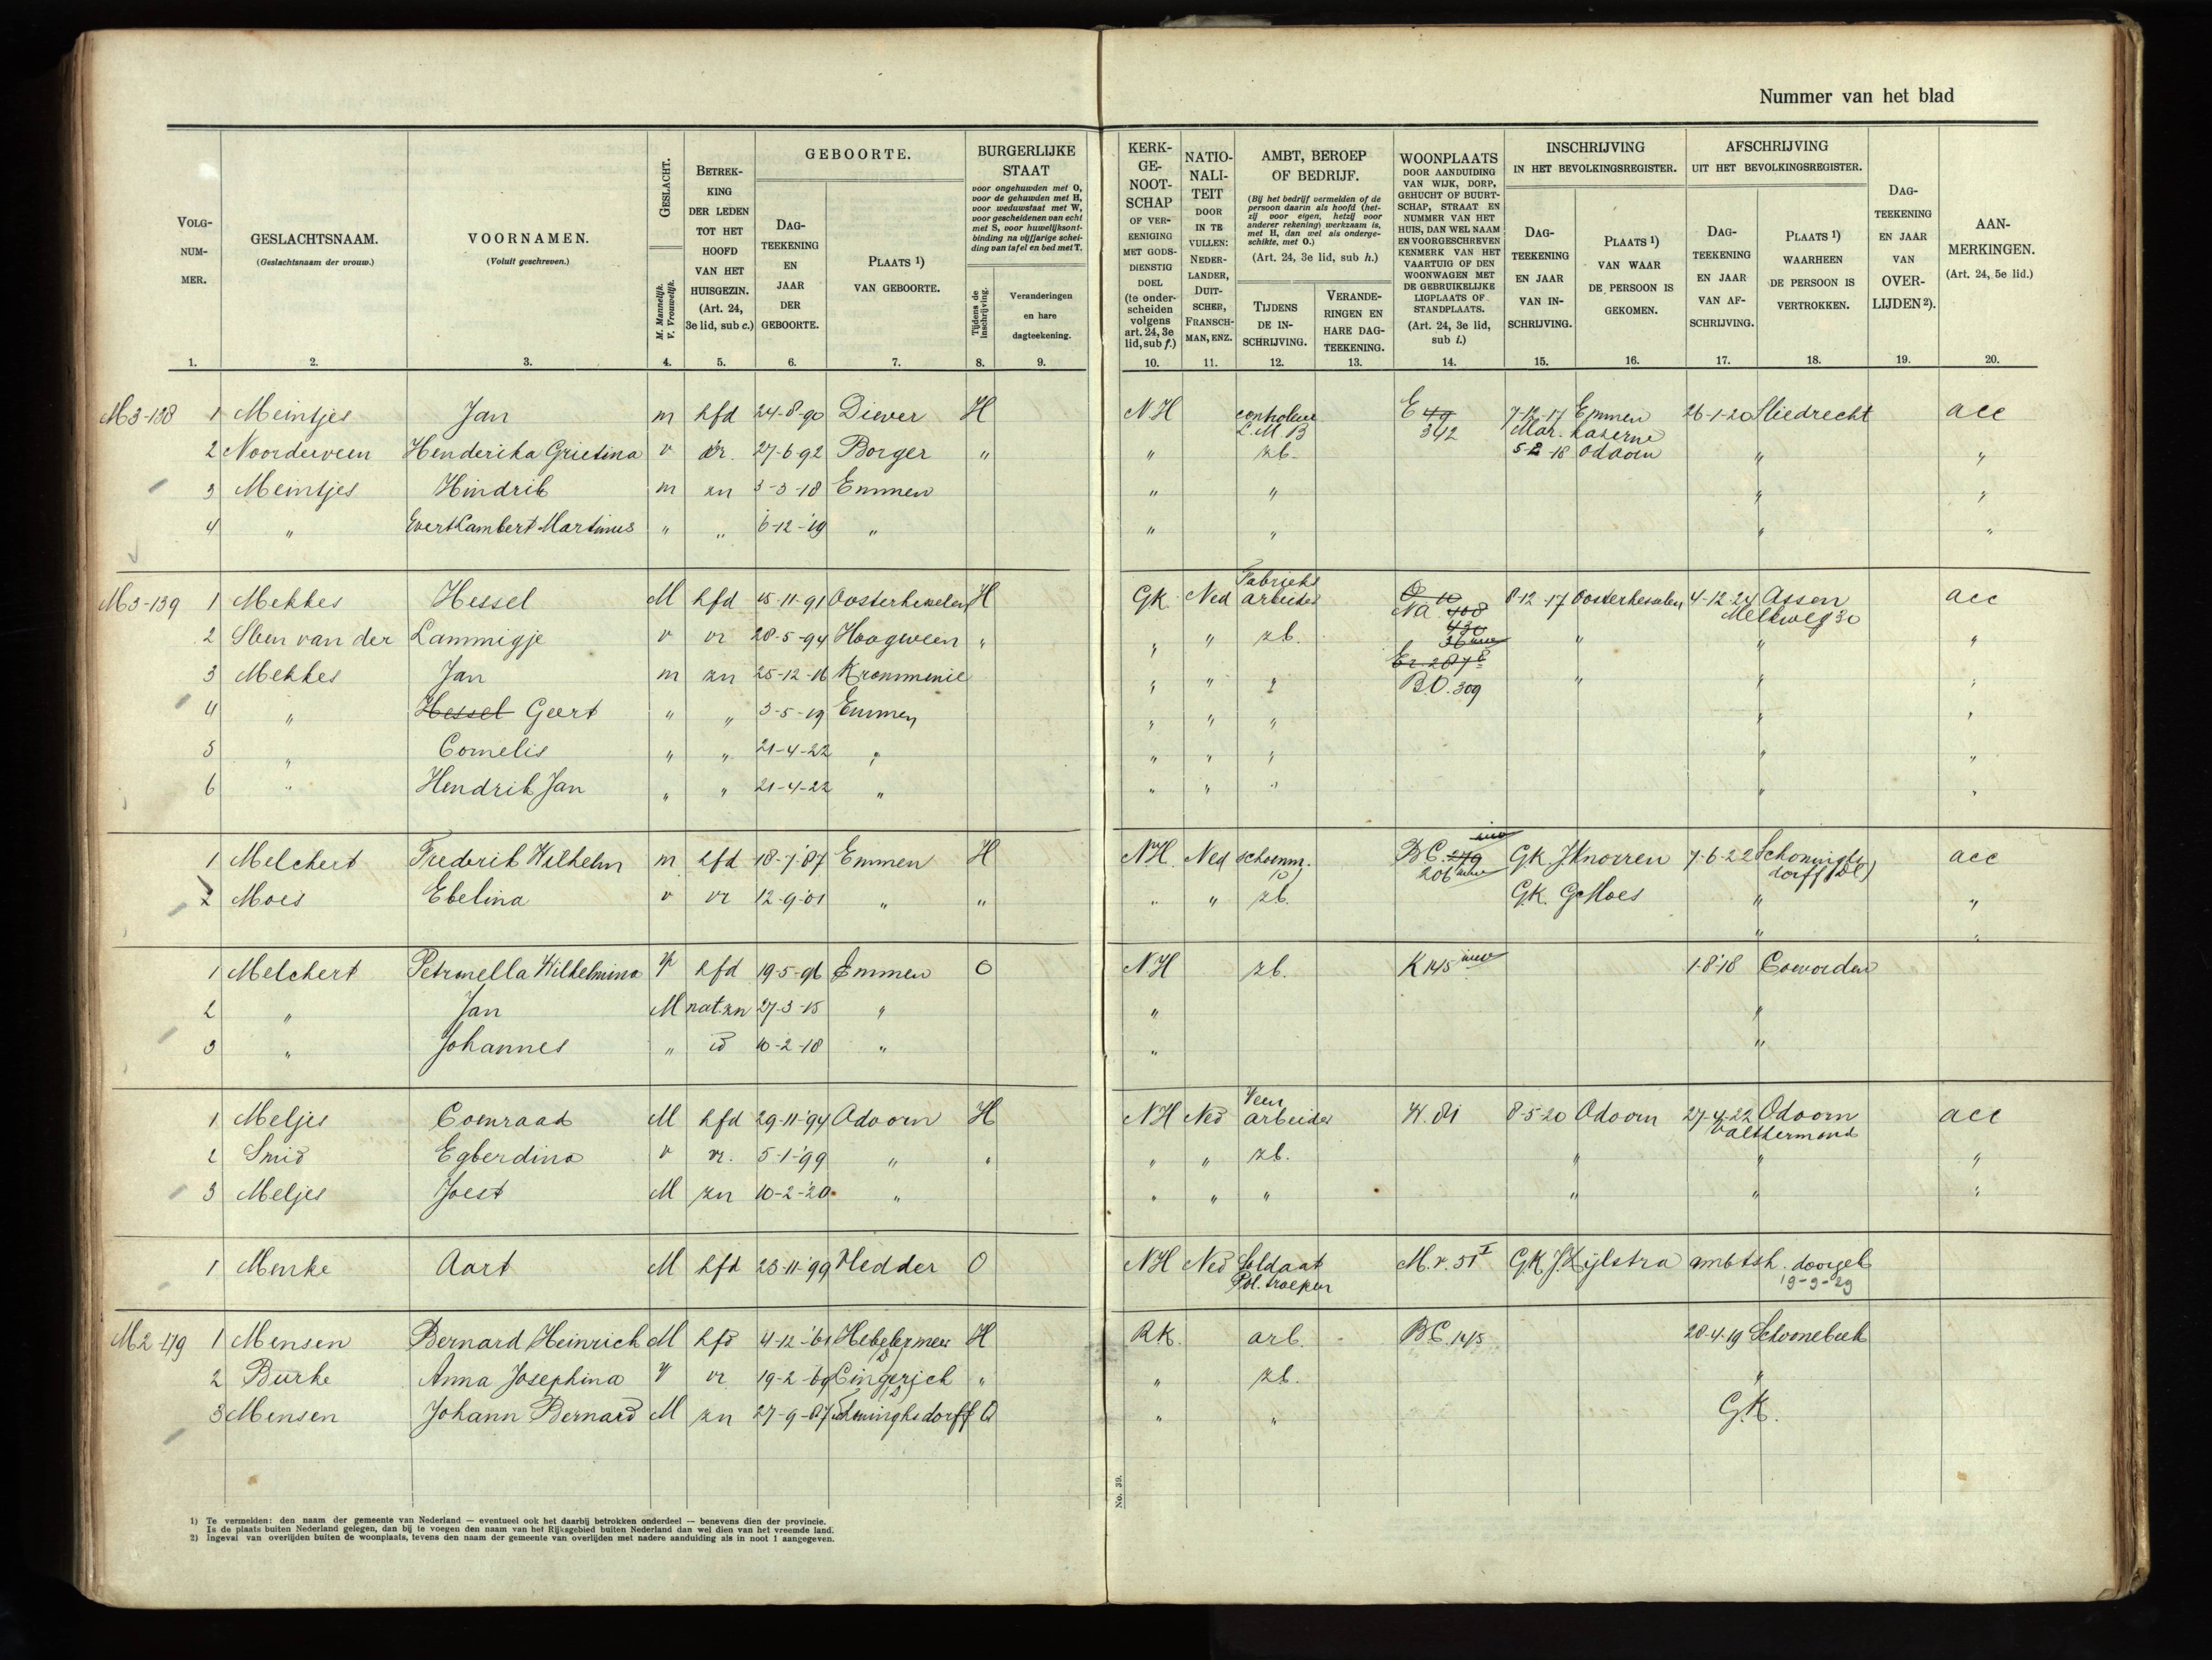 Nummer van het blad
VOLG-NUM-MER. 1.
GESLACHTSNAAM. (Geslachtsnaam der vrouw.) 2.
VOORNAMEN. (Voluit geschreven.) 3.
GESLACHT. M. Mannelijk. V. Vrouwelijk. 4.
BETREK-KING DER LEDEN TOT HET HOOFD VAN HET HUISGEZIN. (Art. 24, 3e lid, sub c.) 5.
GEBOORTE.
DAG-TEEKENING EN JAAR DER GEBOORTE. 6.
PLAATS 1) VAN GEBOORTE. 7.
BURGERLIJKE STAAT
voor ongehuwden met O, voor de gehuwden met H, voor weduwstaat met W, voor gescheidenen van echt met S, voor huwelijksont-binding na vijfjarige schei-ding van tafel en bed met T.
Tijdens de inschrijving. 8.
Veranderingen en hare dagteekening. 9.
KERK-GE-NOOT-SCHAP OF VER-EENIGING MET GODS-DIENSTIG DOEL (te onder-scheiden volgens art. 24, 3e lid, sub f.) 10.
NATIO-NALI-TEIT DOOR IN TE VULLEN: NEDER-LANDER, DUIT-SCHER, FRANSCH-MAN, ENZ. 11.
AMBT, BEROEP OF BEDRIJF.
(Bij het bedrijf vermelden of de persoon daarin als hoofd (het-zij voor eigen, hetzij voor anderer rekening) werkzaam is, met H, dan wel als onderge-schikte, met O.) (Art. 24, 3e lid, sub h.)
TIJDENS DE IN-SCHRIJVING. 12.
VERANDE-RINGEN EN HARE DAG-TEEKENING. 13.
WOONPLAATS DOOR AANDUIDING VAN WIJK, DORP, GEHUCHT OF BUURT-SCHAP, STRAAT EN NUMMER VAN HET HUIS, DAN WEL NAAM EN VOORGESCHREVEN KENMERK VAN HET VAARTUIG OF DEN WOONWAGEN MET DE GEBRUIKELIJKE LIGPLAATS OF STANDPLAATS. (Art. 24, 3e lid, sub i.) 14.
INSCHRIJVING IN HET BEVOLKINGSREGISTER.
DAG-TEEKENING EN JAAR VAN IN-SCHRIJVING. 15.
PLAATS 1) VAN WAAR DE PERSOON IS GEKOMEN. 16.
AFSCHRIJVING UIT HET BEVOLKINGSREGISTER.
DAG-TEEKENING EN JAAR VAN AF-SCHRIJVING. 17.
PLAATS 1) WAARHEEN DE PERSOON IS VERTROKKEN. 18.
DAG-TEEKENING EN JAAR VAN OVER-LIJDEN 2). 19.
AAN-MERKINGEN. (Art. 24, 5e lid.) 20.
M3-138 1 Meintjes Jan m hfd 24-8-90 Diever H NH controleur L.M.B E 49 342 7-12-17 Emmen Mar. kazerne 26-1-20 Sliedrecht acc
2 Noorderveen Henderika Grietina v vr. 27-6-92 Borger " " zb. 5-2-18 Odoorn " "
3 Meintjes Hindrik m zn 3-3-18 Emmen " " " "
4 " Evert Lambert Martinus " " 6-12-'19 " " " " "
M3-139 1 Mekkes Hessel M hfd 15-11-91 Oosterhesselen H GK. Ned Fabrieks arbeider Na 408 430 8-12-17 Oosterhesselen 4-12-24 Assen Melkweg 30 acc
2 Steen van der Lammigje v vr 28-5-94 Hoogeveen " " " zb. 36 nw " " "
3 Mekkes Jan m zn 25-12-16 Krommenie " " " B.O. 309 " " "
4 " Hessel Geert " " 3-5-19 Emmen " " " " "
5 " Cornelis " " 21-4-22 " " " " " "
6 " Hendrik Jan " " 21-4-22 " " " " " "
1 Melchert Frederik Wilhelm m hfd 18-7-'87 Emmen H NH. Ned schoenm. B.C. 279 206 nw GK. J Knorren 7-6-22 Schoningsdorff (Dl) acc
2 Moes Ebelina v vr 12-9-'01 " " " " zb. GK. G Moes " "
1 Melchert Petronella Wilhelmina V hfd 19-5-96 Emmen O NH zb. K 145 nw 1-8-'18 Coevorden
2 " Jan M nat.zn 27-3-15 " " "
3 " Johannes " id 10-2-18 " " "
1 Meljes Coenraad M hfd 29-11-'94 Odoorn H NH Ned Veen arbeider W. 81 8-5-20 Odoorn 27-4-22 Odoorn Valthermond acc
2 Smid Egberdina v vr. 5-1-'99 " " " " zb. " " "
3 Meljes Joest M zn 10-2-'20 " " " " " " "
1 Menke Aart M hfd 23-11-'99 Hedder O NH Ned Soldaat Pol. troepen M.v. 51 I GK J. Zijlstra ambtsh. doorgeh 19-9-29
M2-179 1 Mensen Bernard Heinrich M hfd 4-12-'61 Hebelermeer H RK. arb. B.C. 145 20-4-19 Schoonebeek
2 Burke Anna Josephina V vr 19-2-69 " " zb. "
3 Mensen Johann Bernard M zn 27-9-07 Schöninghsdorff O " " G.K.
No. 39.
1) Te vermelden: den naam der gemeente van Nederland — eventueel ook het daarbij betrokken onderdeel — benevens dien der provincie.
Is de plaats buiten Nederland gelegen, dan bij te voegen den naam van het Rijksgebied buiten Nederland dan wel dien van het vreemde land.
2) Ingeval van overlijden buiten de woonplaats, tevens den naam der gemeente van overlijden met nadere aanduiding als in noot 1 aangegeven.